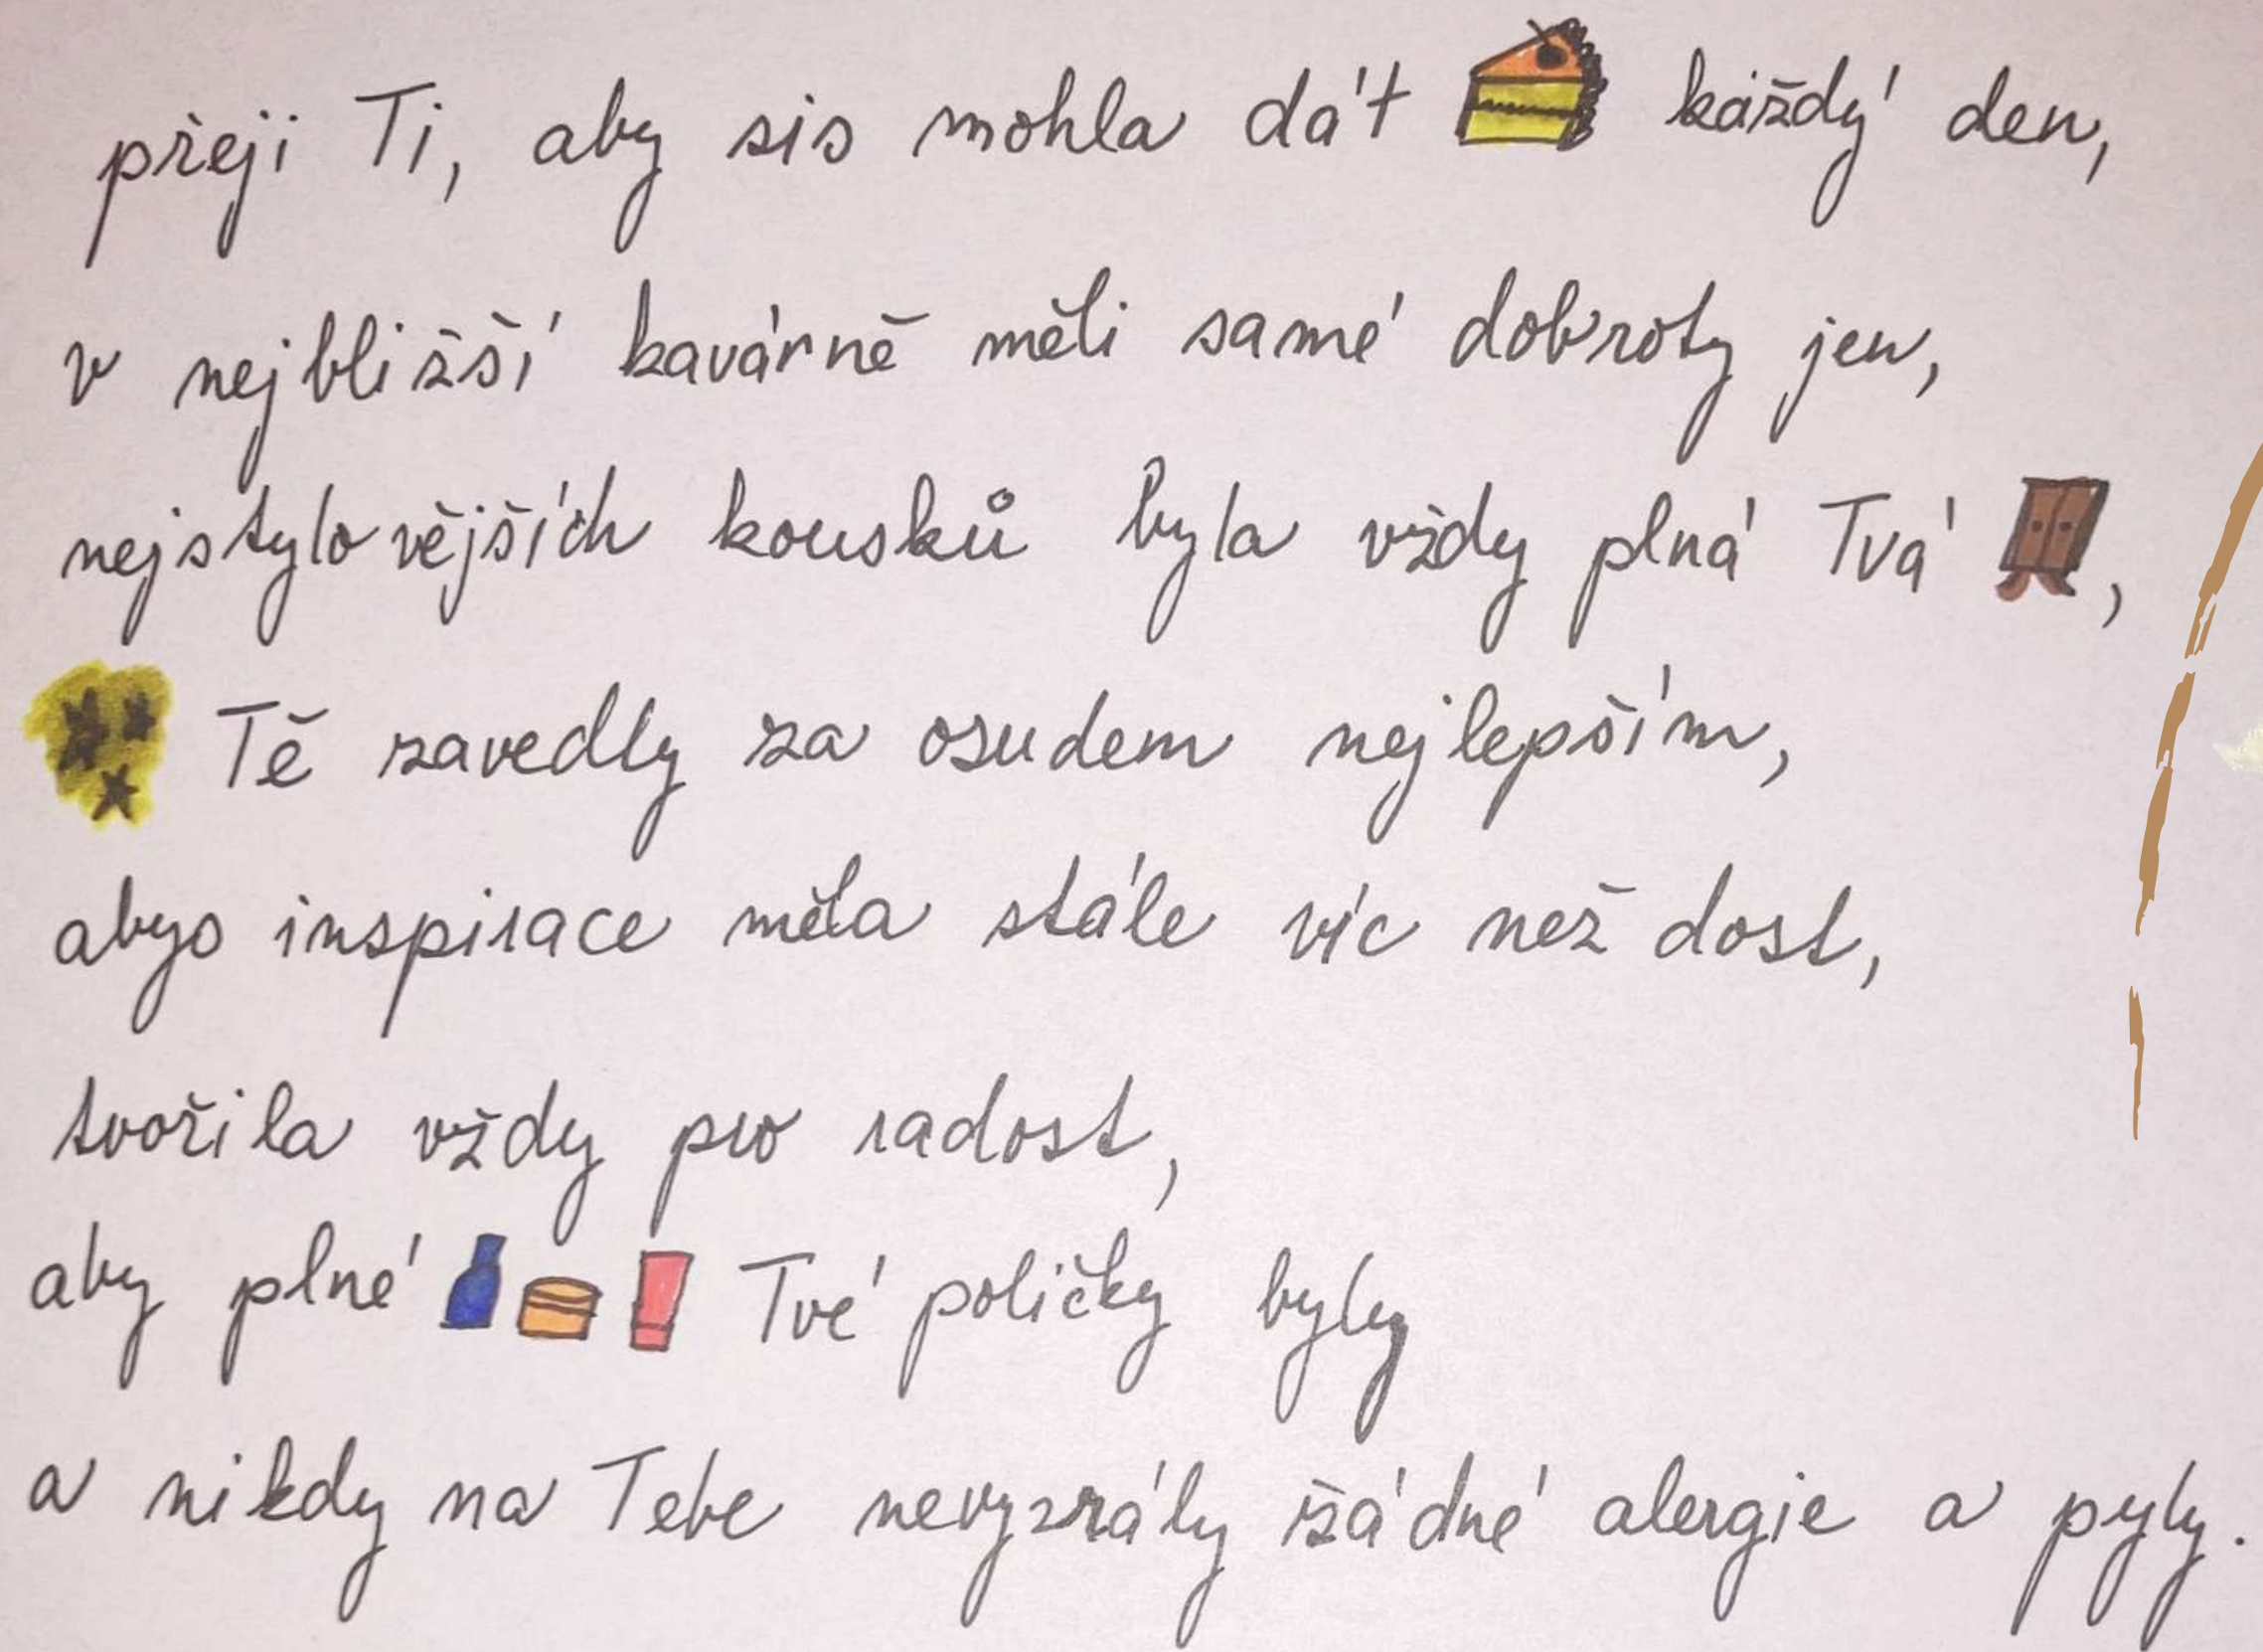 přeji Ti, aby sis mohla dát každý den,
v nejbližší kavárně měli samé dobroty jen,
nejstylovějších kousků byla vždy plná Tvá ,
Tě zavedly za osudem nejlepším,
abys inspirace měla stále víc než dost,
tvořila vždy pro radost,
aby plné Tvé poličky byly
a nikdy na Tebe nevyzrály žádné alergie a pyly.